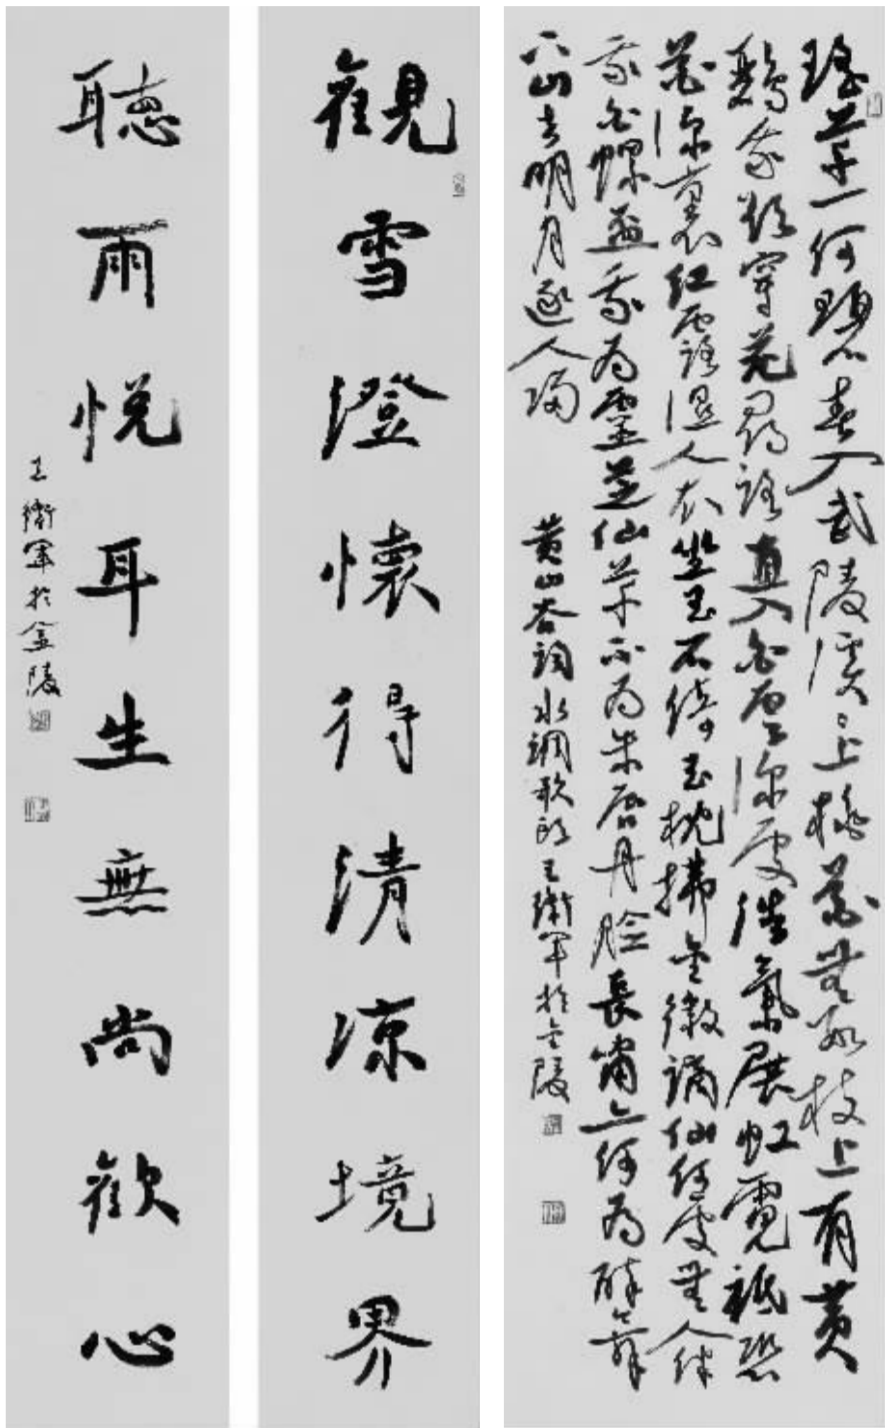 瑤草一何碧春入武陵溪溪上桃花無數枝上有黃
鸝我欲穿花尋路直入白雲深處浩氣展虹霓祗恐
花深裏紅露濕人衣坐玉石倚玉枕拂金徽謫仙何處無人伴
我白螺盃我為靈芝仙草不為朱唇丹臉長嘯亦何為醉舞
下山去明月逐人歸
黃山谷詞水調歌頭王衛軍於金陵
觀雪澄懷得清凉境界
聽雨悦耳生無尚歡心
王衛軍於金陵